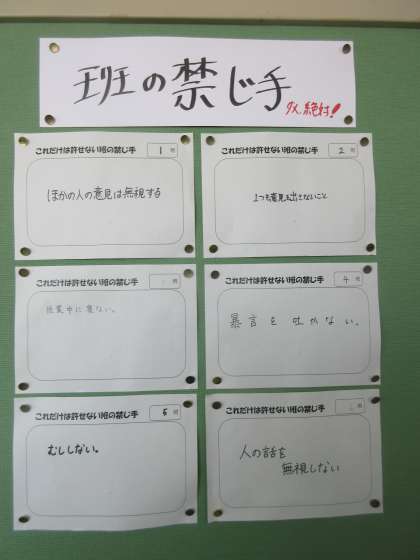 班の禁じ手
ダメ、絶対!
これだけは許せない班の禁じ手 1 班
ほかの人の意見は無視する
これだけは許せない班の禁じ手 2 班
1つも意見を出さないこと
これだけは許せない班の禁じ手 班
授業中に寝ない。
これだけは許せない班の禁じ手 4 班
暴言を吐かない。
これだけは許せない班の禁じ手 5 班
むししない。
これだけは許せない班の禁じ手 班
人の話を
無視しない